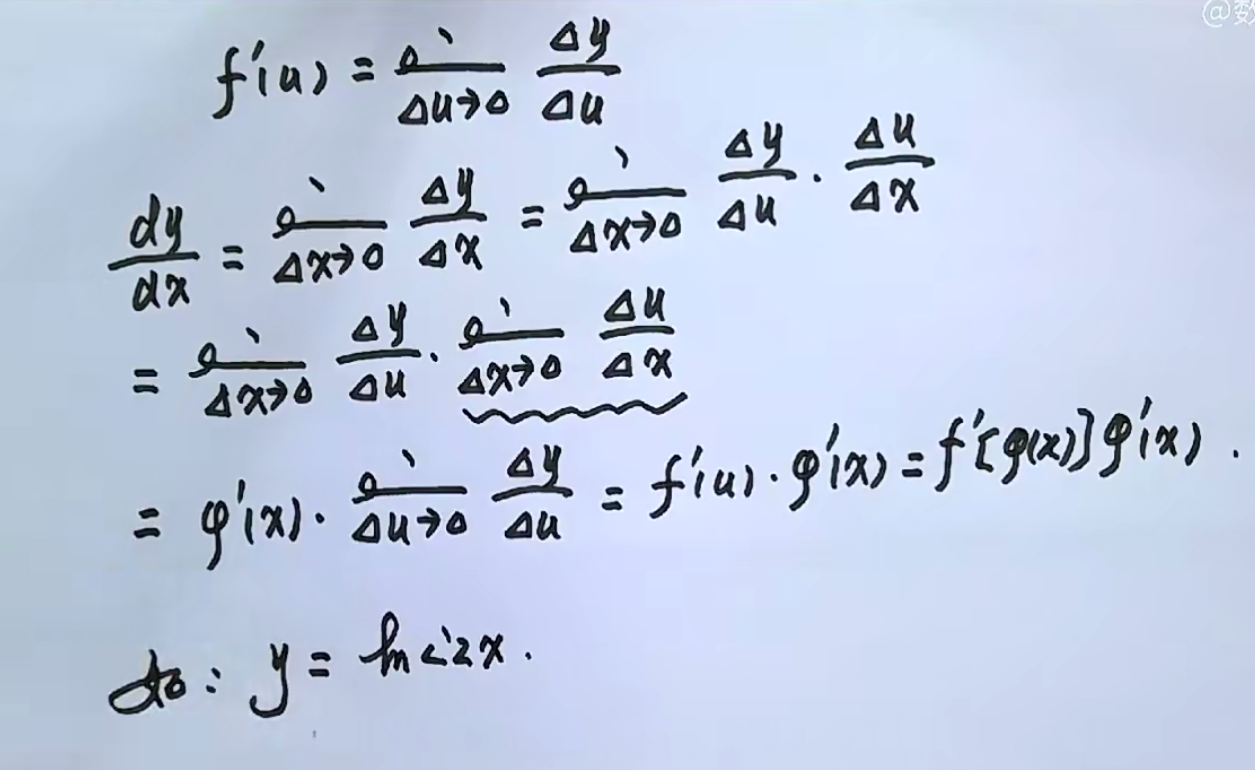 @数
f'(u) = lim Δu→0 Δy/Δu
dy/dx = lim Δx→0 Δy/Δx = lim Δx→0 Δy/Δu · Δu/Δx
= lim Δx→0 Δy/Δu · lim Δx→0 Δu/Δx
= φ'(x) · lim Δu→0 Δy/Δu = f'(u) · φ'(x) = f'[φ(x)]φ'(x) .
如: y = ln 2x .